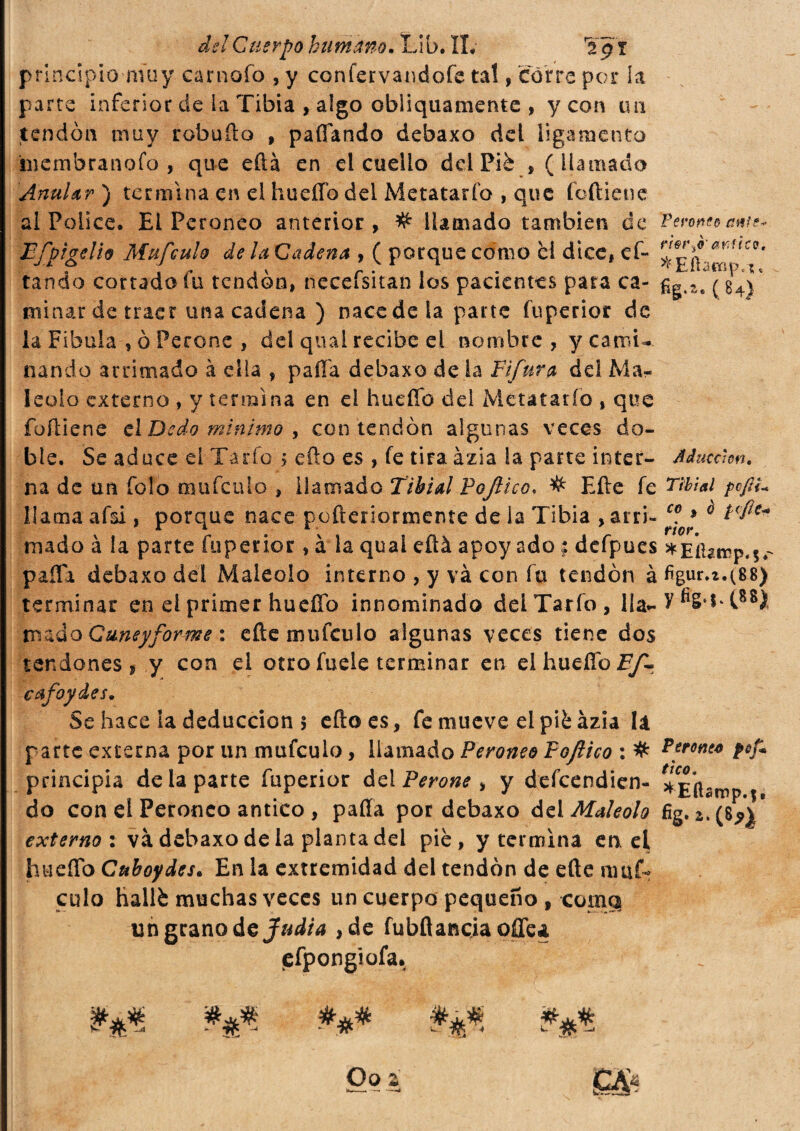 del Cuerpo humano. Lib. II. 291
principio muy carnoſo , y conſervandoſe tal , corre por la
parte inferior de la Tibia , algo obliquamente , y con un
tendòn muy robuſto , paſſando debaxo del ligamento
membranoſo , que eſtà en el cuello del Piè , ( llamado
Anular ) termina en el hueſſo del Metatarſo , que ſoſtiene
al Police. El Peroneo anterior , * llamado tambien de
Eſpigelio Muſculo de la Cadena , ( porque como èl dice, eſ-
tando cortado ſu tendòn, neceſsitan los pacientes para ca-
minar de traer una cadena ) nace de la parte ſuperior de
la Fibula , ò Perone , del qual recibe el nombre , y cami-
nando arrimado à ella , paſſa debaxo de la Fiſura del Ma-
leolo externo , y termina en el hueſſo del Metatarſo , que
ſoſtiene el Dedo minimo , con tendòn algunas veces do-
ble. Se aduce el Tarſo ; eſto es , ſe tira àzia la parte inter-
na de un ſolo muſculo , llamado Tibial Poſtico. * Eſte ſe
llama aſsi , porque nace poſteriormente de la Tibia , arri-
mado à la parte ſuperior , à la qual eſtà apoyado ; deſpues
paſſa debaxo del Maleolo interno , y và con ſu tendòn à
terminar en el primer hueſſo innominado del Tarſo , lla-
mado Cuneyforme : eſte muſculo algunas veces tiene dos
tendones , y con el otro ſuele terminar en el hueſſo Eſ-
cafoydes.
Se hace la deduccion ; eſto es, ſe mueve el piè àzia la
parte externa por un muſculo , llamado Peroneo Poſtico : *
principia de la parte ſuperior del Perone , y deſcendien-
do con el Peroneo antico , paſſa por debaxo del Maleolo
externo : và debaxo de la planta del piè , y termina en el
hueſſo Cuboydes. En la extremidad del tendòn de eſte muſ-
culo hallè muchas veces un cuerpo pequeño , como
un grano de Judia , de ſubſtancia oſſea
eſpongioſa.
Peroneo ante-
rior, ò antico.
*Eſtamp.1.
fig.2. (84)
Aduccion.
Tibial poſti-
co , ò poſte-
rior.
*Eſtamp.5.
figur.2.(88)
y fig.1.(88)
Peroneo poſ-
tico.
*Eſtamp.5.
fig. 2. (89)
Oo 2
CA-